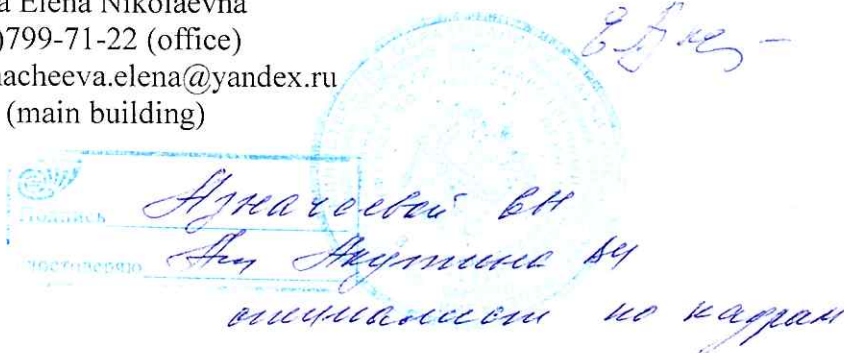 a Elena Nikolaevna
)799-71-22 (office)
nacheeva.elena@yandex.ru
(main building)
Подпись
Азначеевой ЕН
удостоверяю
специалист по кадрам